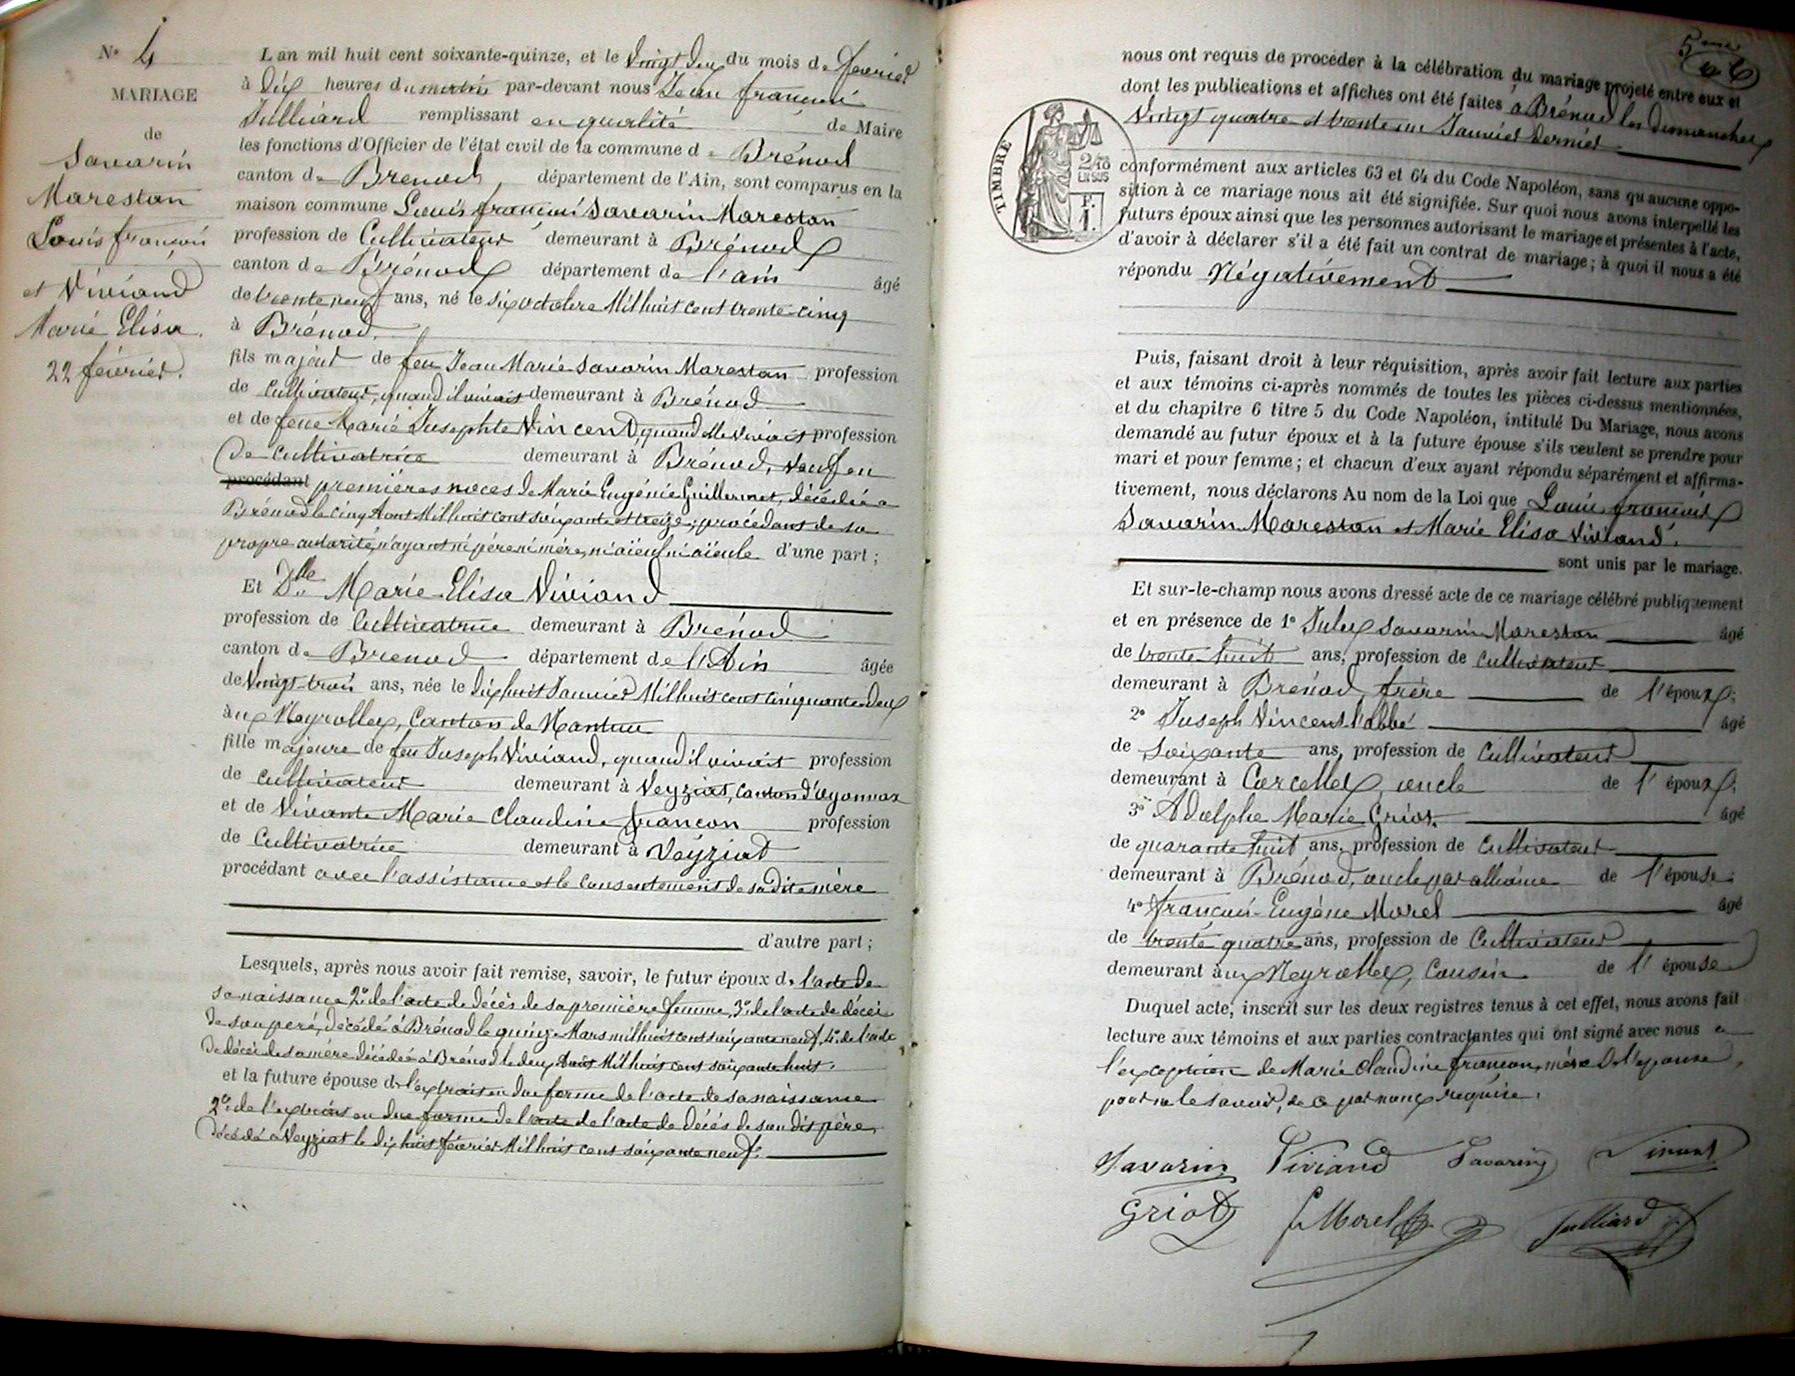 N° 4
MARIAGE
de
Savarin
Marestan
Louis françois
et Viviand
Marie Elisa.
22 février.
L'an mil huit cent soixante-quinze, et le vingt deux du mois de février
à dix heures du matin par-devant nous Jean françois
Julliard remplissant en qualité de Maire
les fonctions d'Officier de l'état civil de la commune de Brénod
canton de Brénod, département de l'Ain, sont comparus en la
maison commune Louis françois Savarin Marestan
profession de Cultivateur demeurant à Brénod
canton de Brénod département de l'ain âgé
de trente neuf ans, né le six octobre Mil huit cent trente-cinq
à Brénod
fils majeur de feu Jean Marie Savarin Marestan profession
de cultivateur, quand il vivait demeurant à Brénod
et de feue Marie Josephte Vincent, quand elle vivait profession
de cultivatrice demeurant à Brénod, veuf en
procédant premières noces de Marie Eugénie Guillermet, décédée à
Brénod le cinq Aout Mil huit cent soixante et treize; procédant de sa
propre autorité, n'ayant ni père ni mère, ni aïeul ni aïeule d'une part;
Et Dlle Marie Elisa Viviand
profession de Cultivatrice demeurant à Brénod
canton de Brénod département de l'Ain âgée
de Vingt-trois ans, née le dix huit Janvier Mil huit cent cinquante deux
à ux Neyrolles, Canton de Nantua
fille majeure de feu Joseph Viviand, quand il vivait profession
de cultivateur demeurant à Veyziat, canton d'oyonnax
et de Vivante Marie Claudine françon profession
de Cultivatrice demeurant à Veyziat
procédant avec l'assistance et le consentement de sa dite mère
d'autre part;
Lesquels, après nous avoir fait remise, savoir, le futur époux de l'acte de
sa naissance 2° de l'acte de décès de sa première femme, 3° de l'acte de décès
de son père, décédé à Brénod le quinze Mars mil huit cent soixante neuf, 4° de l'acte
de décès de sa mère décédée à Brénod le deux Août Mil huit cent soixante huit.
et la future épouse de l'extrait en due forme de l'acte de sa naissance
2° de l'extrait en due forme de l'acte de l'acte de décès de son dit père,
décédé à Veyziat le dix huit février Mil huit cent soixante neuf.
5me
nous ont requis de procéder à la célébration du mariage projeté entre eux et
dont les publications et affiches ont été faites à Brénod les dimanches
Vingt quatre et trente un Janvier dernier
TIMBRE
2/10
EN SUS
F.
1.
conformément aux articles 63 et 64 du Code Napoléon, sans qu'aucune oppo-
sition à ce mariage nous ait été signifiée. Sur quoi nous avons interpellé les
futurs époux ainsi que les personnes autorisant le mariage et présentes à l'acte,
d'avoir à déclarer s'il a été fait un contrat de mariage; à quoi il nous a été
répondu Négativement
Puis, faisant droit à leur réquisition, après avoir fait lecture aux parties
et aux témoins ci-après nommés de toutes les pièces ci-dessus mentionnées,
et du chapitre 6 titre 5 du Code Napoléon, intitulé Du Mariage, nous avons
demandé au futur époux et à la future épouse s'ils veulent se prendre pour
mari et pour femme; et chacun d'eux ayant répondu séparément et affirma-
tivement, nous déclarons Au nom de la Loi que Louis françois
Savarin Marestan et Marie Elisa Viviand.
sont unis par le mariage.
Et sur-le-champ nous avons dressé acte de ce mariage célébré publiquement
et en présence de 1° Jules Savarin Marestan âgé
de trente huit ans, profession de cultivateur
demeurant à Brénod, frère de l'époux;
2° Joseph Vincent l'abbé âgé
de soixante ans, profession de cultivateur
demeurant à Corcelles, oncle de l'époux;
3° Adolphe Marie Griot âgé
de quarante huit ans, profession de Cultivateur
demeurant à Brénod, oncle par alliance de l'épouse;
4° françois-Eugène Morel âgé
de trente quatre ans, profession de Cultivateur
demeurant à ux Neyrolles, Cousin de l'épouse
Duquel acte, inscrit sur les deux registres tenus à cet effet, nous avons fait
lecture aux témoins et aux parties contractantes qui ont signé avec nous à
l'exception de Marie Claudine françon, mère de l'épouse,
pour ne le savoir, de ce par nous requise.
Savarin Viviand Savarin Vincent
Griot f Morel Julliard